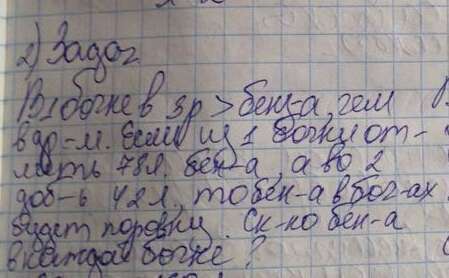 2) Задач
В 1 бочке в 3 р > бенз-а, чем
в др-м. Если из 1 бочки от-
лить 78 л. бен-а, а во 2
доб-ь 42 л, то бен-а в боч-ах
будет поровну. Ск-ко бен-а
в каждой бочке?